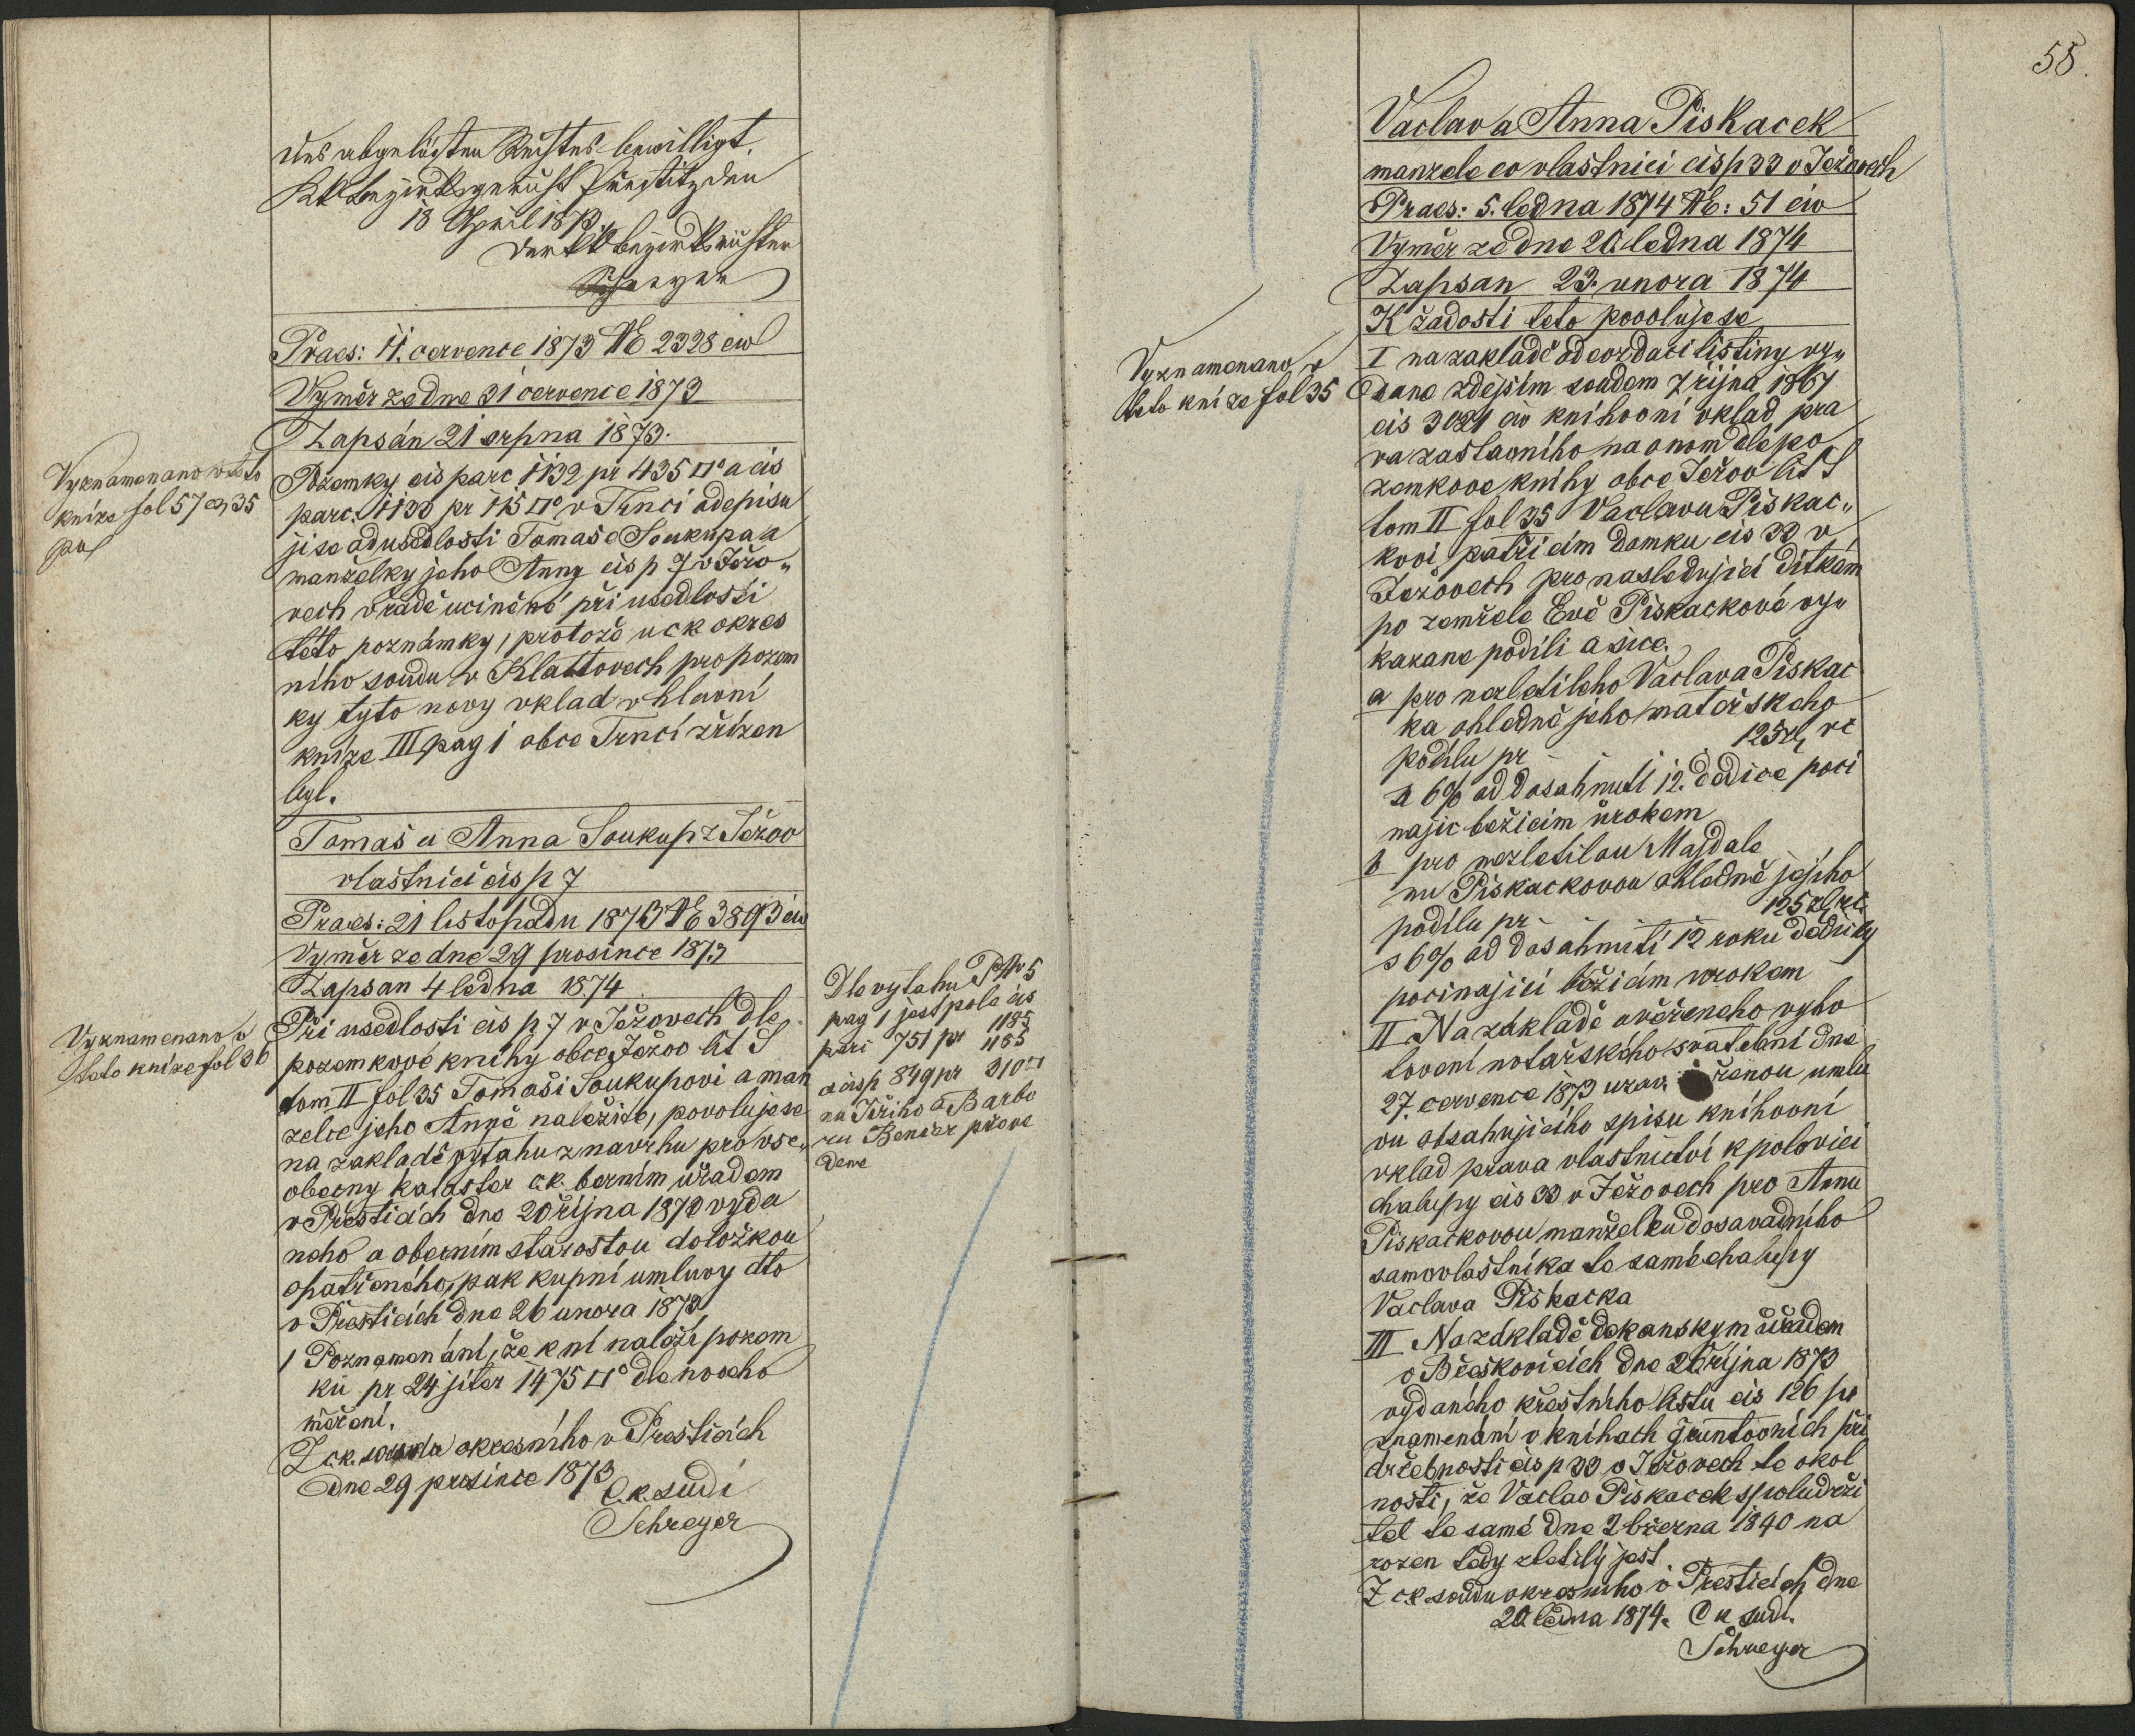 des abgelösten Rechtes bewilligt.
KK Bezirksgericht Přestitz den
18 April 1873
Der KK Bezirksrichter
Schreyer
Praes: 11. cervence 1873 NE 2328 civ
Vyměr ze dne 31 cervence 1873
Zapsán 21 srpna 1873.
Vyznamenano v teto
knize fol 57 35
Pozemky cis parc 1132 pr 435 □° a cis
parc. 1133 pr 115 □° v Trnci odepisu
ji se od usedlosti Tomaše Soukupa a
manželky jeho Anny cis p 7 v Ježo„
vech v řadě ucinéné při usedlosti
této poznámky, protože u ck okres
ního soudu v Klattovech pro pozem
ky tyto novy vklad v hlavní
knize III pag 1 obce Trnci zřízen
byl.
Tomaš a Anna Soukup z Ježov
vlastnici cis p 7
Praes: 21 listopadu 1873 NE 3893 civ
Vyměr ze dne 29 prosince 1873
Zapsan 4 ledna 1874
Vyznamenano v
teto knize fol 36
Při usedlosti cis p 7 v Ježovech dle
pozemkové knihy obce Ježov lit S
tom II fol 35 Tomaši Soukupovi a man
zelce jeho Anně naležité, povoluje se
na zakladě vytahu z navrhu pro vse„
obecny kataster c.k. berním uřadem
v Přesticích dne 20 října 1873 vyda
neho a obecním starostou doložkou
opatřeného, pak kupní umluvy dto
v Přesticích dne 26 unora 1873
1 Poznamenání, že k ní naleží pozem
ků pr 24 jiter 1475 □° dle noveho
měření.
Z c.k. soudu okresního v Presticích
dne 29 prosince 1873
C.k. sudí
Schreyer
Dle vytahu 5
pag 1 jest pole cis
parc 751 pr 1185
1185
a cis p 849 pr 310 □
na Jiřiho a Barbo
ru Bender převe
dene
58.
Vaclav a Anna Piskacek
manzele co vlastnici cis p 33 v Ježovech
Praes: 5. ledna 1874 NE: 51 civ
Vyměr ze dne 20. ledna 1874
Zapsan 23. unora 1874
K žadosti teto povoluje se
Vyznamenano v
teto knize fol 35
I na zakladě odevzdaci listiny vy„
dane zdejsím soudem 7 rijna 1867
cis 3021 civ knihovní vklad pra
va zastavního na onom dle po
zemkove knihy obce Ježov lit S
tom II fol 35 Vaclavu Piskac„
kovi patřicím domku cis 33 v
Ježovech pro nasledujici ditkám
po zemřele Evě Piskackové vy„
kazane podíli a sice.
a pro nezletileho Vaclava Piskac
ka ohledně jeho mateřskeho
podílu pr 125 zl, rc
a 6% od dosahnutí 12. dědice poci
najic bežicim úrokem
b pro nezletilou Majdale
nu Piskackovou ohledně jejiho
podílu pr 125 zl, rc
s 6% od dosahnutí 12 roku dědicky
pocinajici bežicím urokem
II Na základě ověřeneho vyho
tovení notářského svatební dne
27. cervence 1873 uzav řenou umlu
vu obsahujiciho spisu knihovní
vklad prava vlastnictví k polovici
chalupy cis 33 v Ježovech pro Annu
Piskackovou manželku dosavadního
samovlastníka té samé chalupy
Vaclava Piskacka
III Na zakladě dekanskym úřadem
v Břeskovicích dne 26 října 1873
vydaného křestního listu cis 126 po
znamenání v knihach gruntovních při
držebnosti cis p 33 v Ježovech te okol
nosti, že Vaclav Piskacek spoludrži
tel te samé dne 2 března 1840 na
rozen tedy zletilý jest.
Z ck soudu okresniho v Presticích dne
20 ledna 1874. C k sudí.
Schreyer